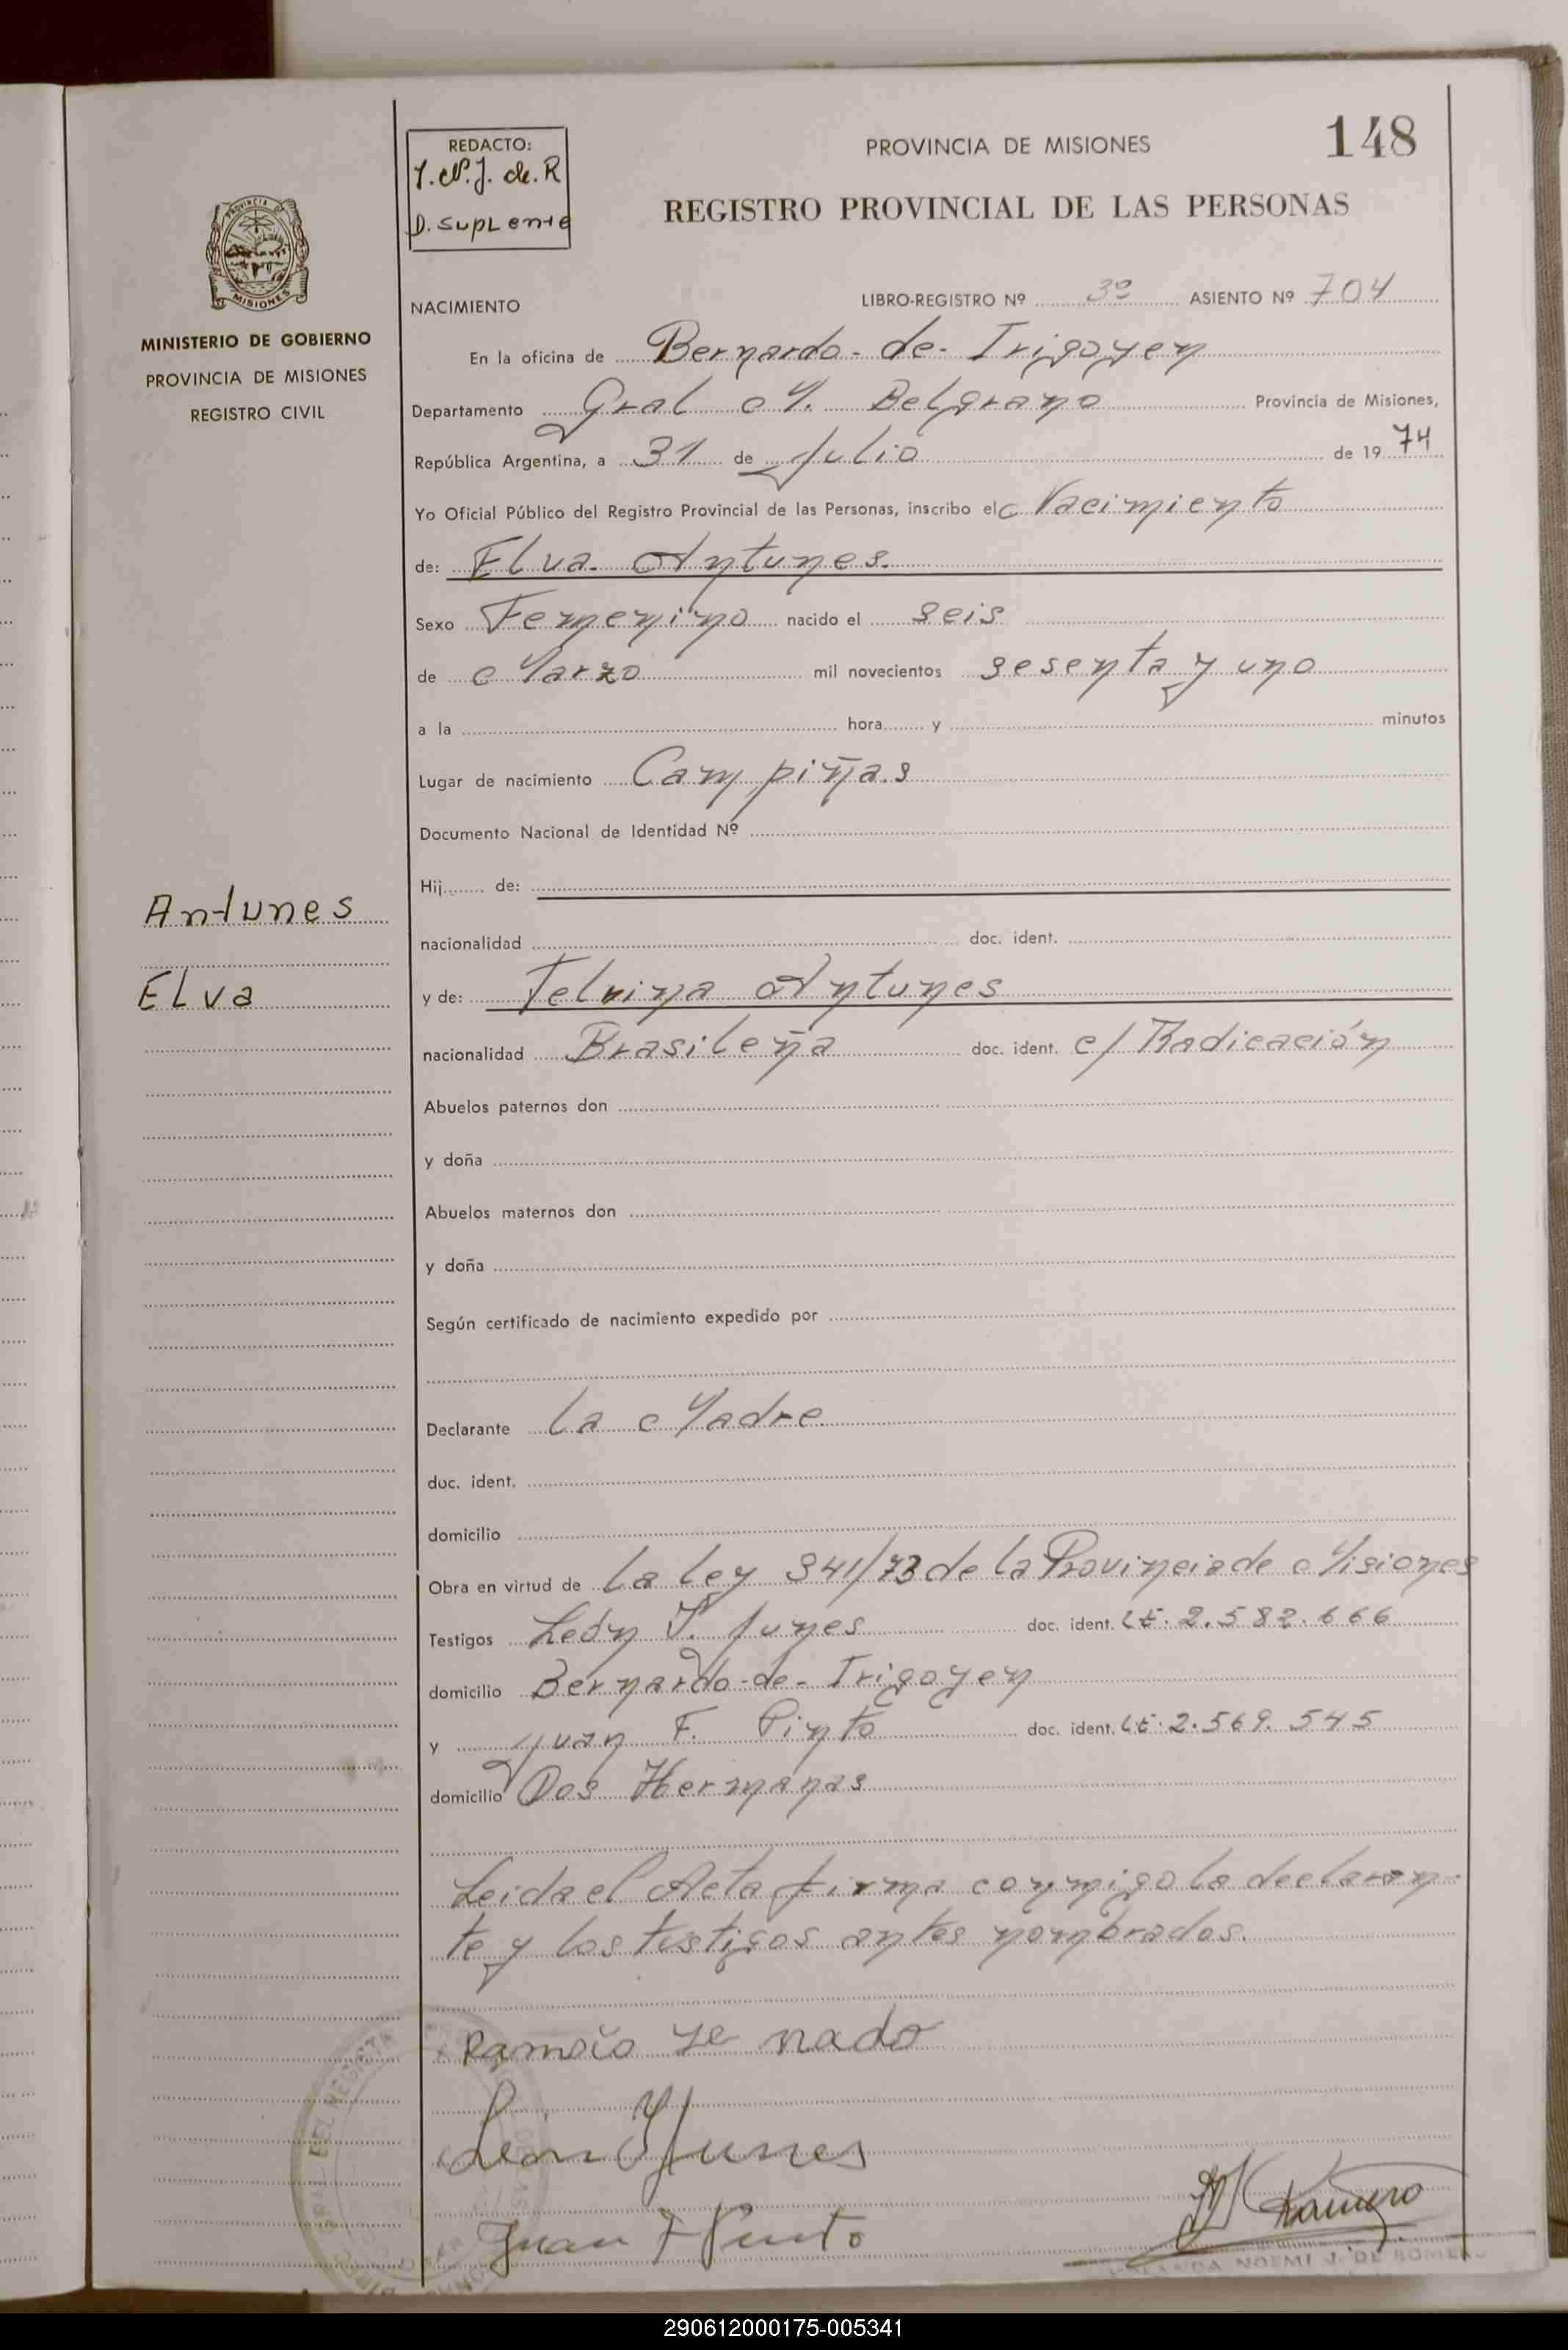 148
REDACTO:
Y. N. J. de. R
D. Suplente
PROVINCIA DE MISIONES
REGISTRO PROVINCIAL DE LAS PERSONAS
PROVINCIA DE
MISIONES
MINISTERIO DE GOBIERNO
PROVINCIA DE MISIONES
REGISTRO CIVIL
NACIMIENTO
LIBRO-REGISTRO Nº 3º ASIENTO Nº 704
En la oficina de Bernardo-de-Irigoyen
Departamento Gral M. Belgrano Provincia de Misiones,
República Argentina, a 31 de Julio de 1974
Yo Oficial Público del Registro Provincial de las Personas, inscribo el Nacimiento
de: Elva Antunes.
Sexo Femenino nacido el seis
de Marzo mil novecientos sesenta y uno
a la hora y minutos
Lugar de nacimiento Campiñas
Documento Nacional de Identidad Nº
Hij de:
Antunes
nacionalidad doc. ident.
Elva
y de: Telvina Antunes
nacionalidad Brasileña doc. ident. c/ Radicación
Abuelos paternos don
y doña
Abuelos maternos don
y doña
Según certificado de nacimiento expedido por
Declarante La Madre
doc. ident.
domicilio
Obra en virtud de La Ley 341/73 de la Provincia de Misiones
Testigos León V. Junes doc. ident. LE. 2.582.666
domicilio Bernardo-de-Irigoyen
y Juan F. Pinto doc. ident. LE. 2.569.545
domicilio Dos Hermanas
Leida el Acta firma conmigo la declaran-
te y los testigos antes nombrados.
León V Junes
Juan F Pinto
Romero
NOEMI J. DE ROMERO
290612000175-005341